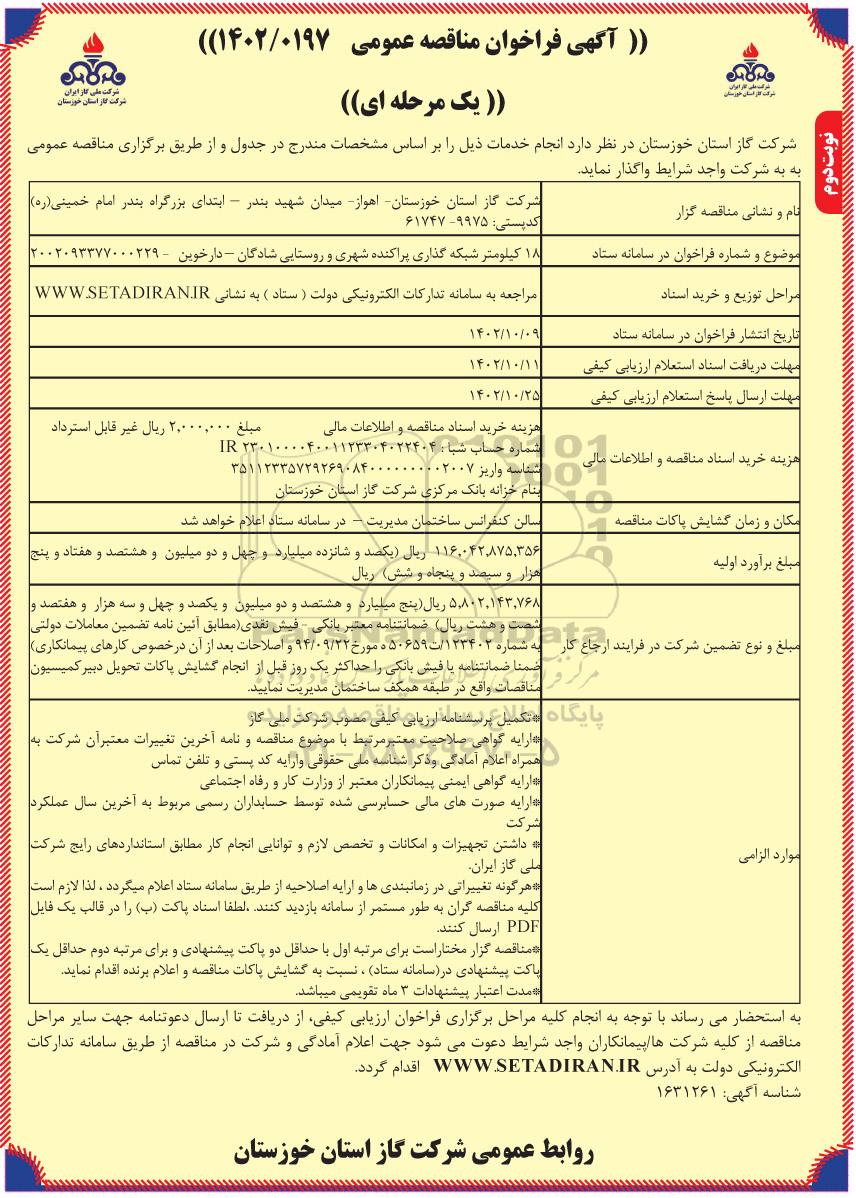 (( آگهی فراخوان مناقصه عمومی ۱۴۰۲/۰۱۹۷))
(( یک مرحله ای))
شرکت ملی گاز ایران
شرکت گاز استان خوزستان
شرکت ملی گاز ایران
شرکت گاز استان خوزستان
نوبت دوم
شرکت گاز استان خوزستان در نظر دارد انجام خدمات ذیل را بر اساس مشخصات مندرج در جدول و از طریق برگزاری مناقصه عمومی
به به شرکت واجد شرایط واگذار نماید.
نام و نشانی مناقصه گزار
شرکت گاز استان خوزستان- اهواز- میدان شهید بندر – ابتدای بزرگراه بندر امام خمینی(ره)
کدپستی: ۹۹۷۵- ۶۱۷۴۷
موضوع و شماره فراخوان در سامانه ستاد
۱۸ کیلومتر شبکه گذاری پراکنده شهری و روستایی شادگان –دارخوین - ۲۰۰۲۰۹۳۳۷۷۰۰۰۲۲۹
مراحل توزیع و خرید اسناد
مراجعه به سامانه تدارکات الکترونیکی دولت ( ستاد ) به نشانی WWW.SETADIRAN.IR
تاریخ انتشار فراخوان در سامانه ستاد
۱۴۰۲/۱۰/۰۹
مهلت دریافت اسناد استعلام ارزیابی کیفی
۱۴۰۲/۱۰/۱۱
مهلت ارسال پاسخ استعلام ارزیابی کیفی
۱۴۰۲/۱۰/۲۵
هزینه خرید اسناد مناقصه و اطلاعات مالی
هزینه خرید اسناد مناقصه و اطلاعات مالی مبلغ ۲,۰۰۰,۰۰۰ ریال غیر قابل استرداد
شماره حساب شبا : IR ۲۳۰۱۰۰۰۰۴۰۰۱۱۲۳۳۰۴۰۲۲۴۰۴
شناسه واریز ۳۵۱۱۲۳۳۵۷۲۹۲۶۹۰۸۴۰۰۰۰۰۰۰۰۰۲۰۰۷
بنام خزانه بانک مرکزی شرکت گاز استان خوزستان
مکان و زمان گشایش پاکات مناقصه
سالن کنفرانس ساختمان مدیریت – در سامانه ستاد اعلام خواهد شد
مبلغ برآورد اولیه
۱۱۶,۰۴۲,۸۷۵,۳۵۶ ریال (یکصد و شانزده میلیارد و چهل و دو میلیون و هشتصد و هفتاد و پنج
هزار و سیصد و پنجاه و شش) ریال
مبلغ و نوع تضمین شرکت در فرایند ارجاع کار
۵,۸۰۲,۱۴۳,۷۶۸ ریال(پنج میلیارد و هشتصد و دو میلیون و یکصد و چهل و سه هزار و هفتصد و
شصت و هشت ریال) ضمانتنامه معتبر بانکی - فیش نقدی(مطابق آئین نامه تضمین معاملات دولتی
به شماره ۱۲۳۴۰۲/ت۵۰۶۵۹ ه مورخ۹۴/۰۹/۲۲ و اصلاحات بعد از آن درخصوص کارهای پیمانکاری)
ضمنا ضمانتنامه یا فیش بانکی را حداکثر یک روز قبل از انجام گشایش پاکات تحویل دبیرکمیسیون
مناقصات واقع در طبقه همکف ساختمان مدیریت نمایید.
موارد الزامی
*تکمیل پرسشنامه ارزیابی کیفی مصوب شرکت ملی گاز
*ارایه گواهی صلاحیت معتبرمرتبط با موضوع مناقصه و نامه آخرین تغییرات معتبرآن شرکت به
همراه اعلام آمادگی وذکر شناسه ملی حقوقی وارایه کد پستی و تلفن تماس
*ارایه گواهی ایمنی پیمانکاران معتبر از وزارت کار و رفاه اجتماعی
*ارایه صورت های مالی حسابرسی شده توسط حسابداران رسمی مربوط به آخرین سال عملکرد
شرکت
* داشتن تجهیزات و امکانات و تخصص لازم و توانایی انجام کار مطابق استانداردهای رایج شرکت
ملی گاز ایران.
*هرگونه تغییراتی در زمانبندی ها و ارایه اصلاحیه از طریق سامانه ستاد اعلام میگردد ، لذا لازم است
کلیه مناقصه گران به طور مستمر از سامانه بازدید کنند. ،لطفا اسناد پاکت (ب) را در قالب یک فایل
PDF ارسال کنند.
*مناقصه گزار مختاراست برای مرتبه اول با حداقل دو پاکت پیشنهادی و برای مرتبه دوم حداقل یک
پاکت پیشنهادی در(سامانه ستاد) ، نسبت به گشایش پاکات مناقصه و اعلام برنده اقدام نماید.
*مدت اعتبار پیشنهادات ۳ ماه تقویمی میباشد.
به استحضار می رساند با توجه به انجام کلیه مراحل برگزاری فراخوان ارزیابی کیفی، از دریافت تا ارسال دعوتنامه جهت سایر مراحل
مناقصه از کلیه شرکت ها/پیمانکاران واجد شرایط دعوت می شود جهت اعلام آمادگی و شرکت در مناقصه از طریق سامانه تدارکات
الکترونیکی دولت به آدرس WWW.SETADIRAN.IR اقدام گردد.
شناسه آگهی: ۱۶۳۱۲۶۱
روابط عمومی شرکت گاز استان خوزستان